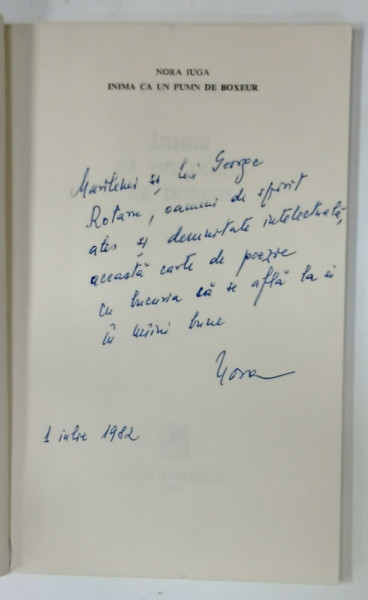 NORA IUGA
INIMA CA UN PUMN DE BOXEUR
Marilenei și lui George
Rotaru, oameni de spirit
ales și demnitate intelectuală,
această carte de poezie
cu bucuria că se află la ei
în mîini bune
Nora
1 iulie 1982